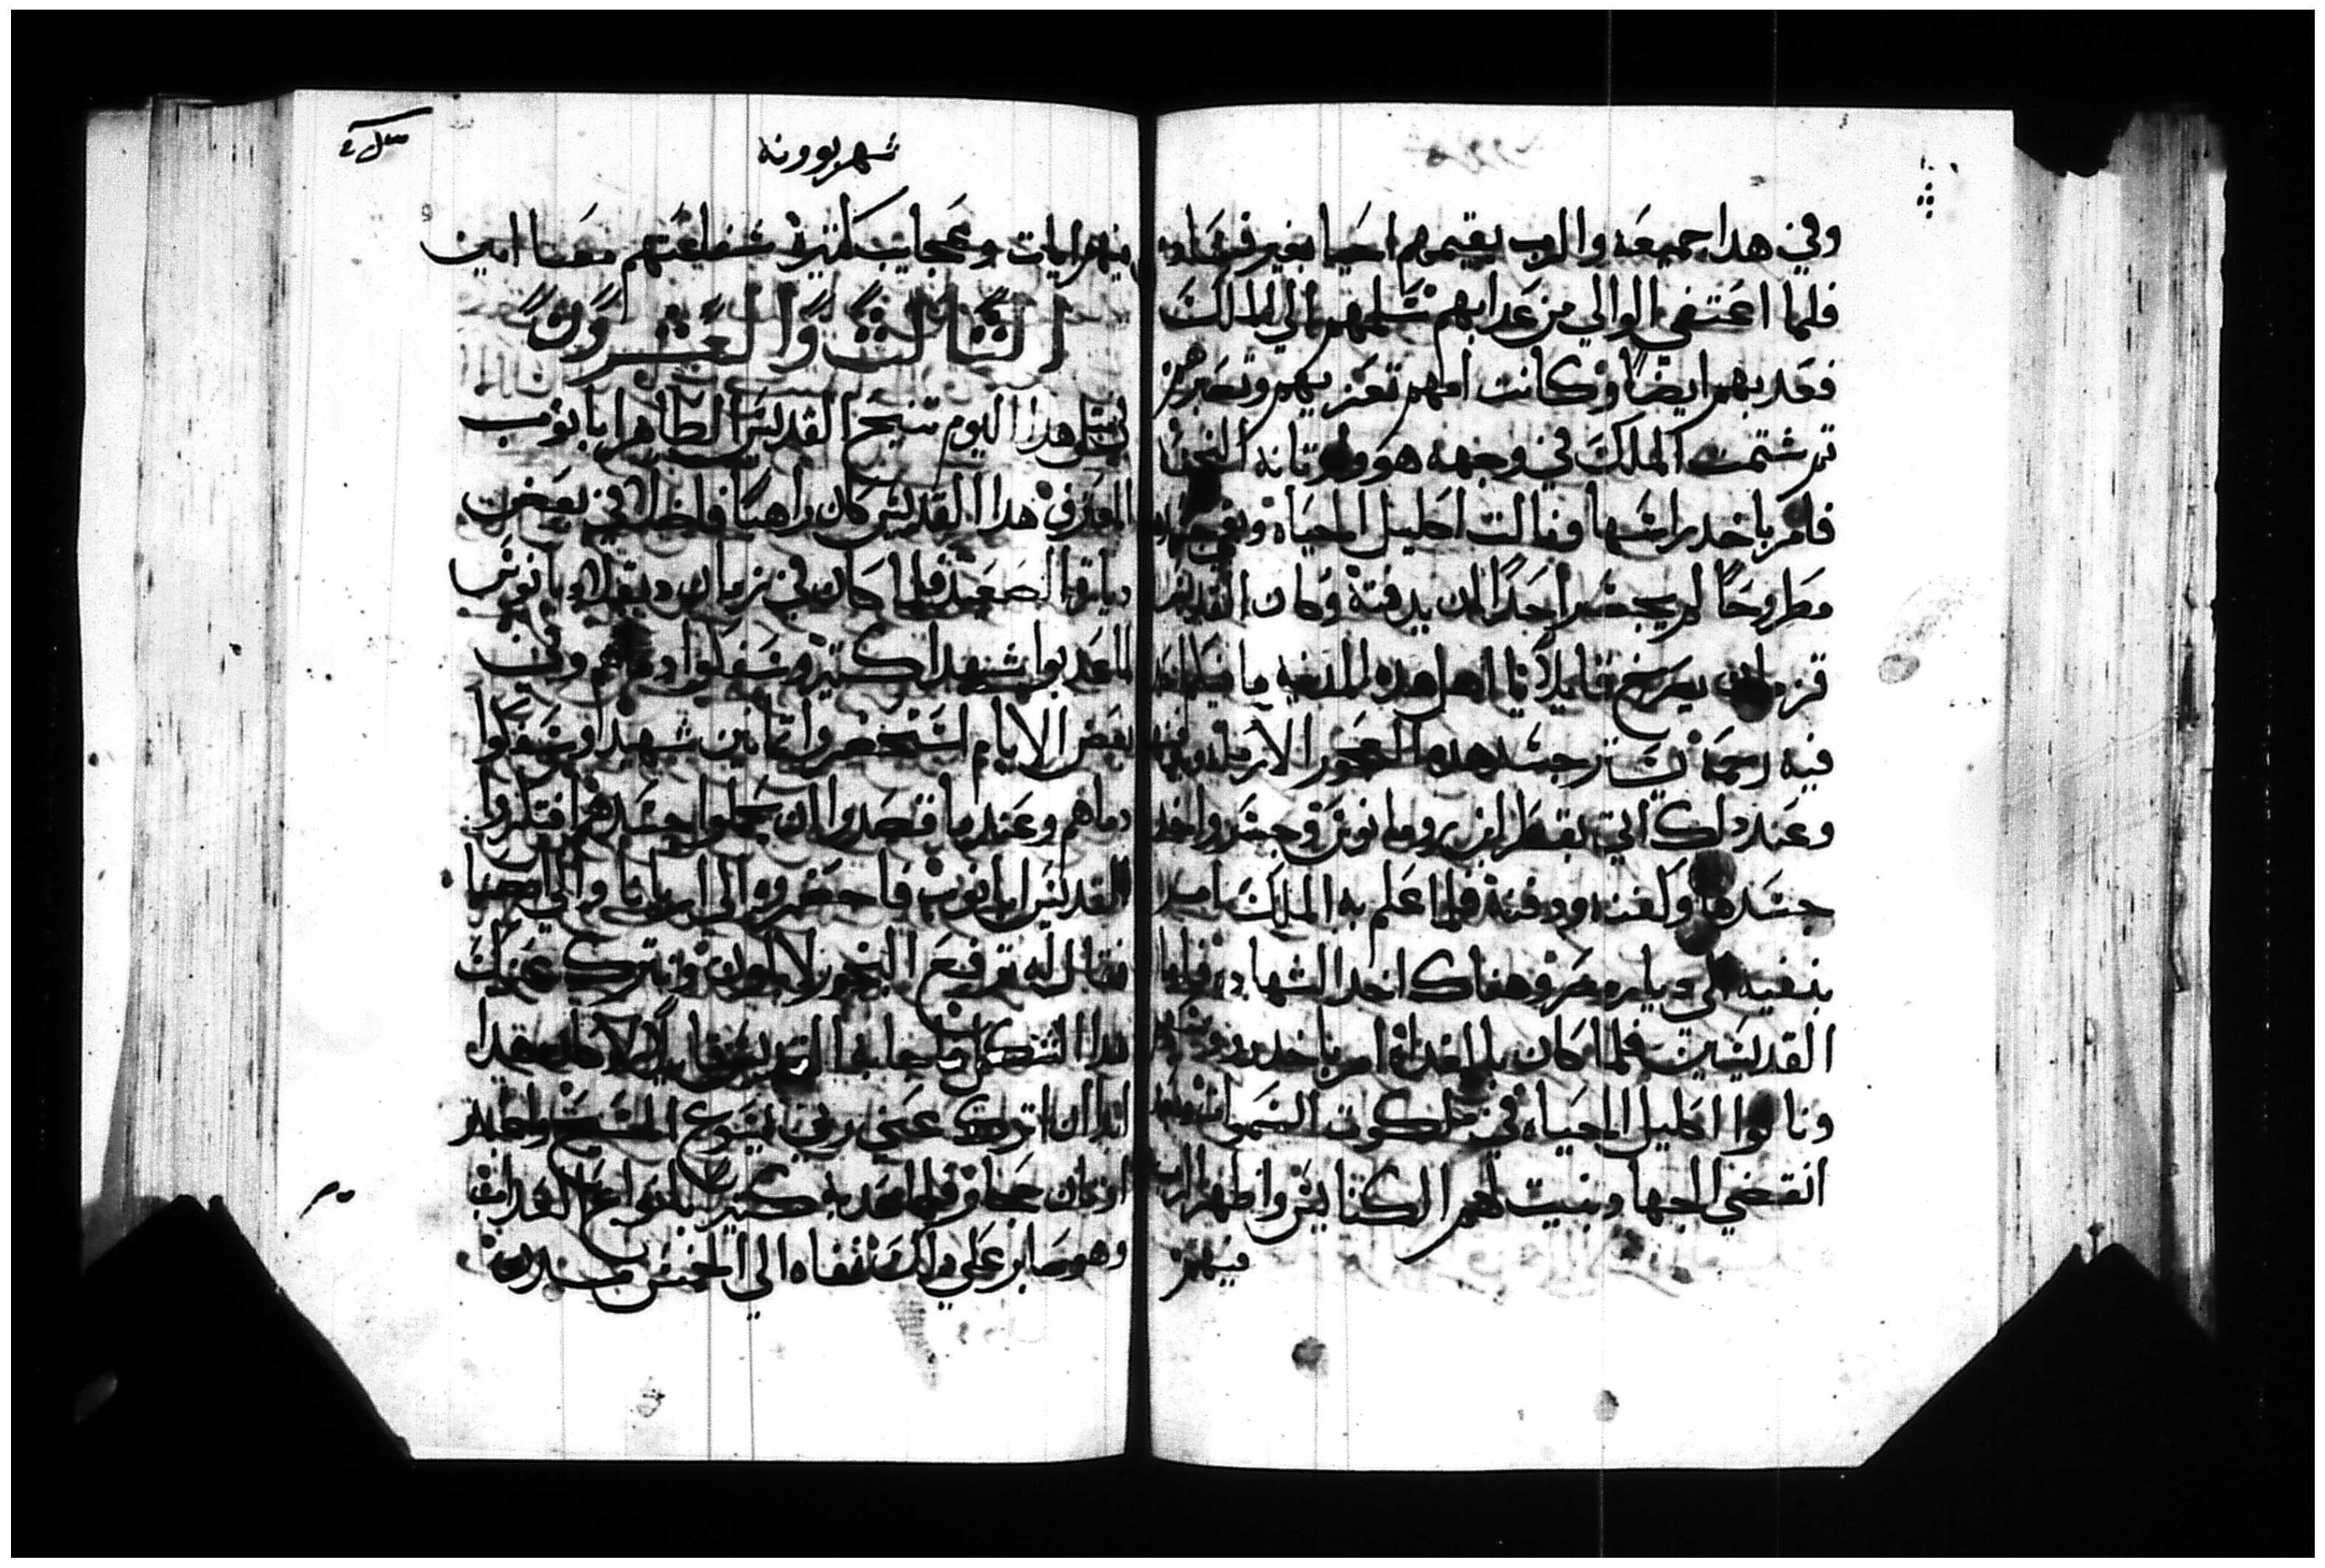 وفي هدا جميعه والرب يقيمهم احيا بغير فساد
فلما اعتفي الوالي من عدابهم سلمهم الي الملك
فعدبهم ايضا وكانت امهم تعزيهم وتصبرهم
تم شتمت الملك في وجهه هو واوتانه النجسه
فامر باخد راسها ونالت اكليل الحياه وبقي جسدها
مطروحا لم يجسر احدا ان يدفنه وكان القديس
قزمان يصرخ قايلا يا اهل هده المدينه ما فيكم احد
فيه رحمه يستر جسد هده العجوز الارمله
وعند دلك اتي بقطر ابن رومانوس وجسر واخد
جسدها وكفنه ودفنه فلما علم به الملك امر
بنفيه الي ديار مصر وهناك اخد الشهاده فاما
القديسين فلما كان بالغداه امر باخد روسهم
ونالوا اكليل الحياه في ملكوت السموات
انقضي الجهاد وبنيت لهم الكنايس واظهر الرب
منهم
شهر بوونه
منهم ايات وعجايب كتيره شفاعتهم معنا امين
التالت والعشرون
في متل هدا اليوم تنيح القديس الطاهر ابا نوب
المعترف هدا القديس كان راهبا فاضلا في بعض
ديارة الصعيد فلما كان في زمان دقلاديانوس
لما عدبوا شهدا كتيره وسفكوا دماهم وفي
بعض الايام استحضروا تمانين شهيدا وسفكوا
دماهم وعند ما قصدوا ان يحملوا جسدهم افتكروا
القديس ابا نوب فاحضروه الي اريانا والي انصنا
فقال له ترفع البخور لابلون وتترك عنك
هدا الشكل فاجابه القديس قايلا لا كان هدا
ابدا ان اترك عني ربي يسوع المسيح واعبد
اوتان حجاره فلما عدبه كتير بانواع العداب
وهو صابر علي دلك نفاه الي الخمس مدن